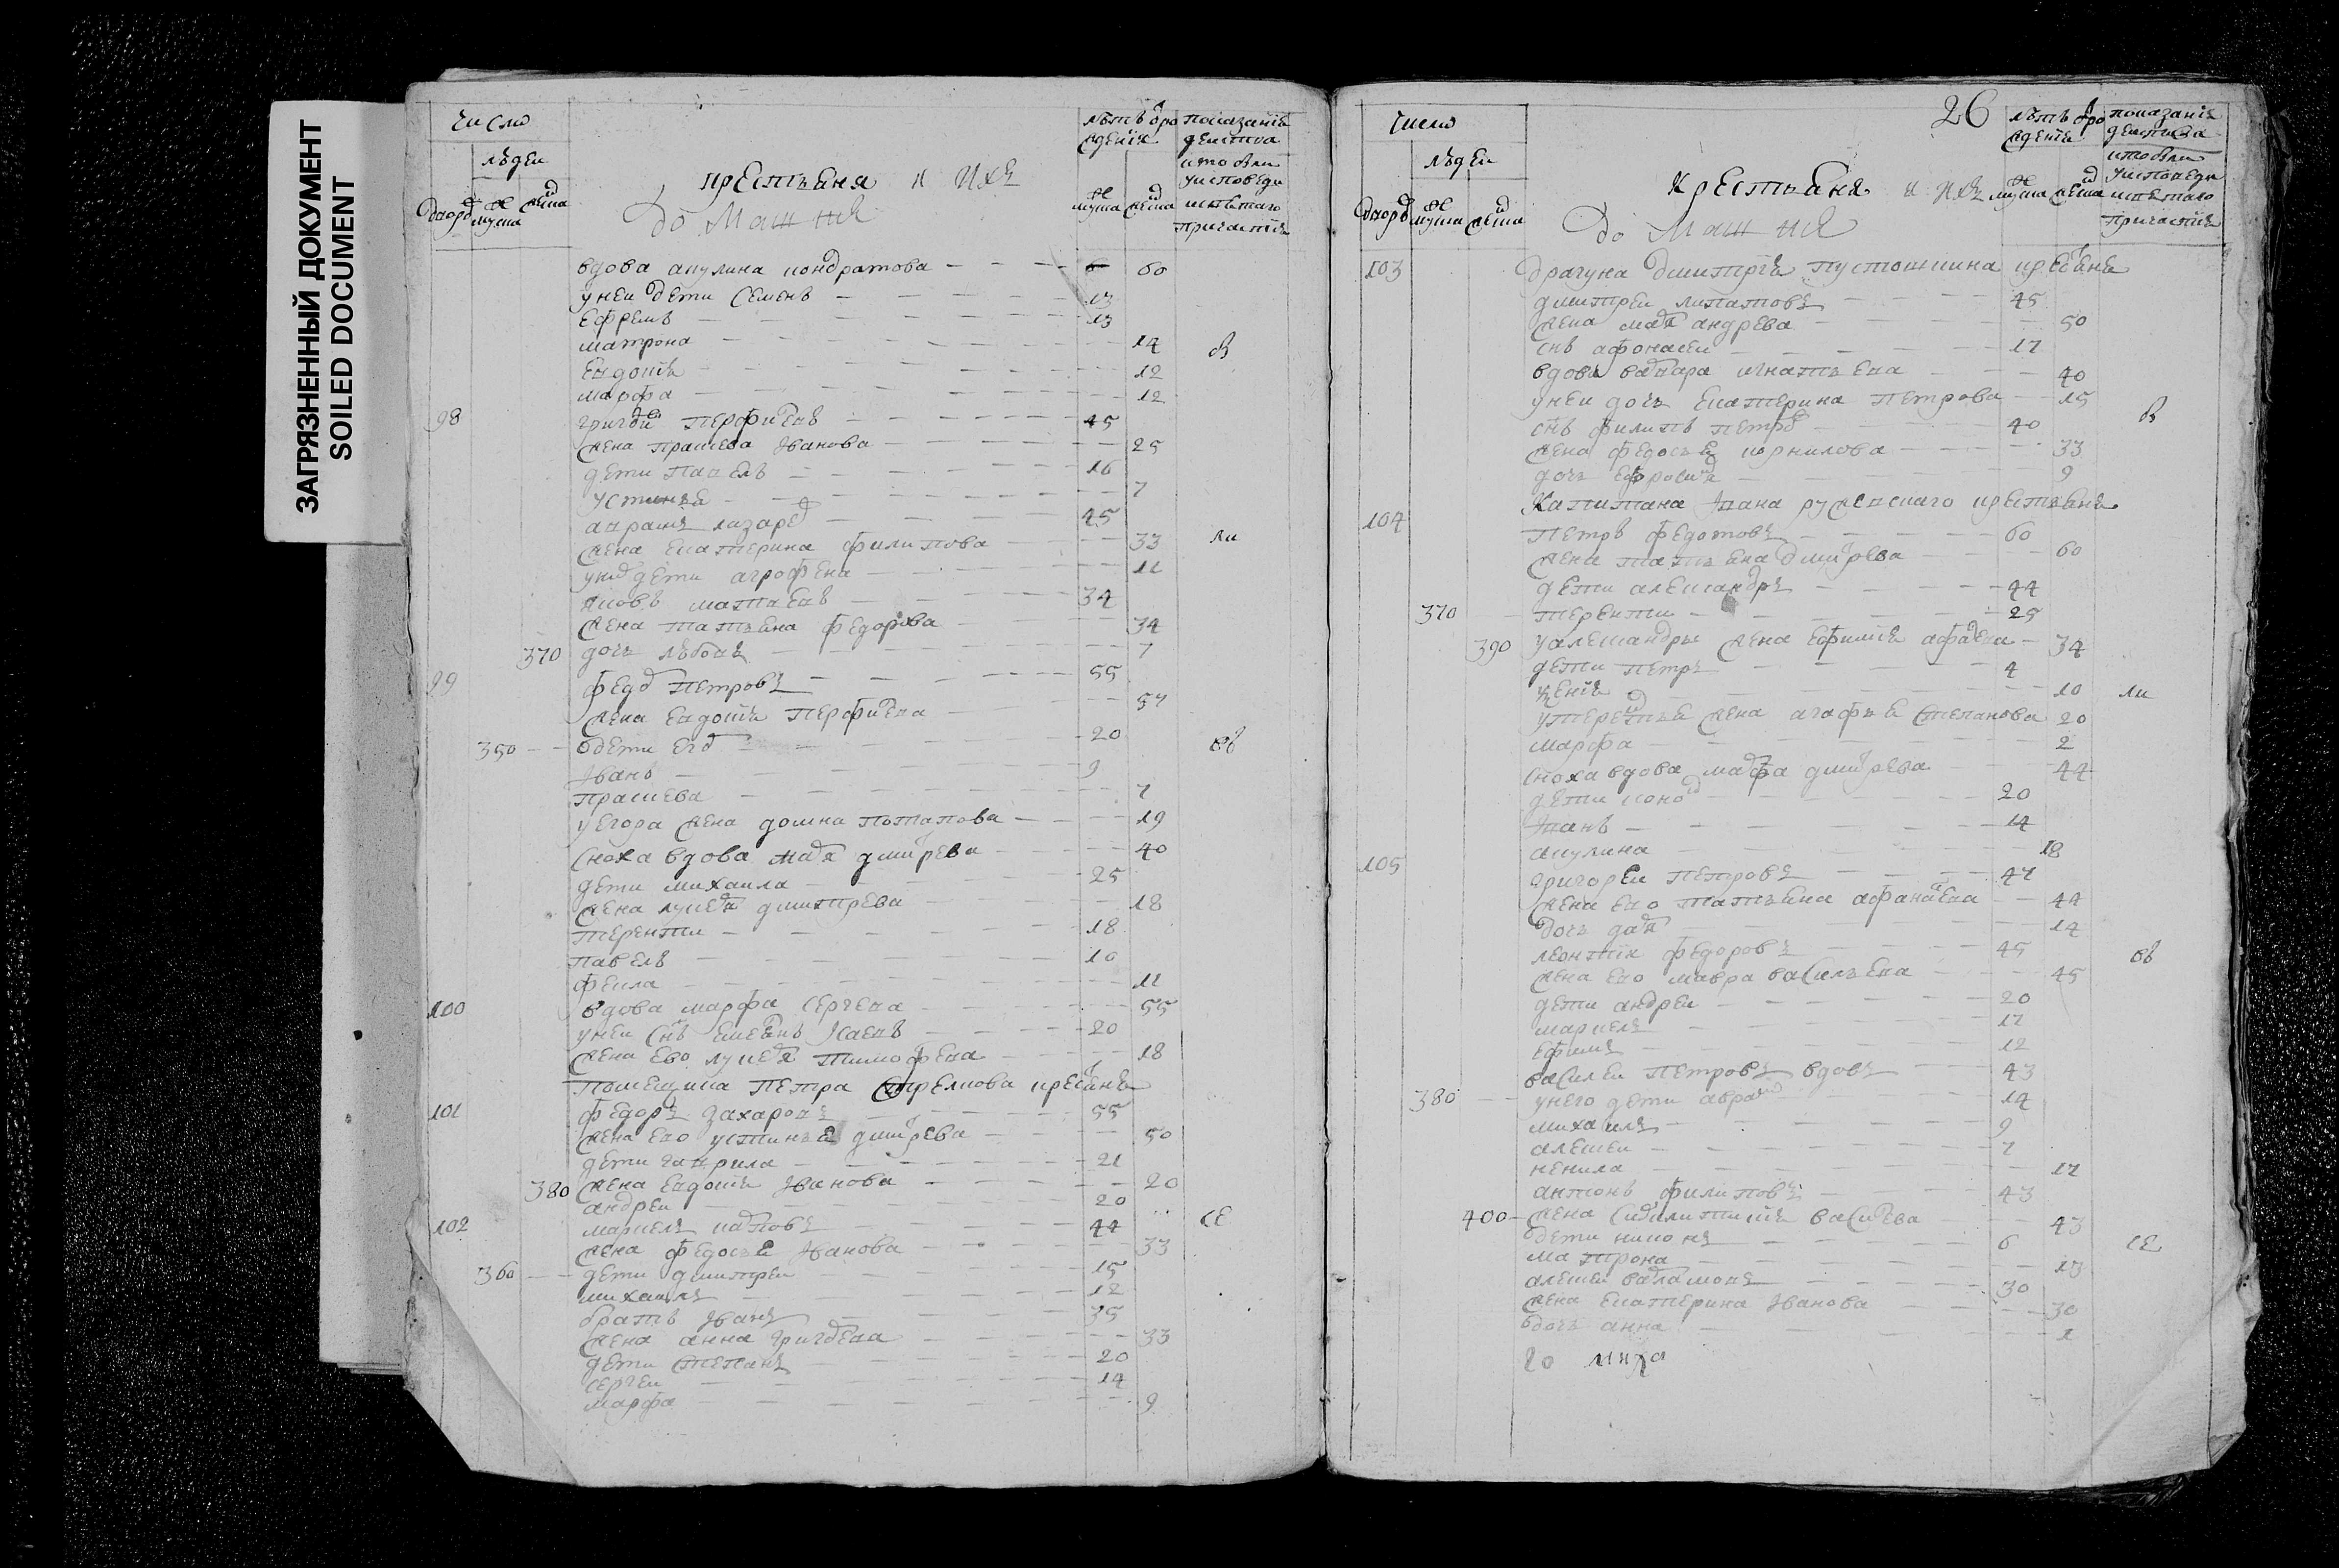 ЗАГРЯЗНЕННЫЙ ДОКУМЕНТ
SOILED DOCUMENT
число
людеи
дворо муже женска
крестьяня и ихъ
домашния
лѣтъ от рождения
муже женска
показание
действа
кто был
у исповеди
и святаго
причастия
вдова акулина кондратова 60
у неи дети Семенъ 13
Ефремъ 13
матрона 14
Евдокия 12
марфа 12
98 григореи перфильевъ 45
жена прасковя Иванова 25
дети павелъ 16
устинья 7
аврамъ лазаревъ 45
жена екатерина филипова 33
у них дети агрофена 11
яковъ матвеевъ 34
жена татьяна федорова 34
370 дочь любовь 7
99 федоръ петровъ 55
жена евдокия перфильева 57
350 дети егоръ 20
Иванъ 9
прасковя 7
у егора жена домна потапова 19
сноха вдова марья дмитрева 40
дети михаила 25
жена лукерья дмитрева 18
терентеи 18
павелъ 10
фекла 11
100 вдова марфа сергеева 55
у неи сынъ емельянъ Исаевъ 20
жена ево лукерья тимофеева 18
помещика петра стрелкова крестьяня
101 федоръ захаровъ 55
жена ево устинья дмитрева 50
дети гаврила 21
380 жена евдокия Иванова 20
андреи 20
102 маркелъ карповъ 44
жена федосья Иванова 33
360 дети дмитреи 15
михаилъ 12
братъ Иванъ 35
жена анна григорева 33
дети степанъ 20
сергеи 14
марфа 9
26
число
людеи
дворо муже женска
крестьяня и ихъ
домашния
лѣтъ от рождения
муже женска
показание
действа
кто был
у исповеди
и святаго
причастия
103 драгуна дмитрия пустошкина крестьяня
дмитреи липатовъ 45
жена марья андрева 50
снъ афонасеи 17
вдова варвара игнатьева 40
у неи дочь екатерина петрова 15
снъ филипъ петровъ 40
жена федосья корнилова 33
дочь ефросиния 9
Капитана Ивана ружевскаго крестьяня
104 петръ федотовъ 60
жена татьяна дмитрева 60
дети александръ 44
370 терентеи 25
390 у александры жена ефимия афанасева 34
дети петръ 4
ксения 10
у терентья жена агафья степанова 20
марфа 2
сноха вдова марфа дмитрева 44
дети конон 20
Иванъ 14
акулина 18
105 григореи петровъ 47
жена ево татьяна афанасева 44
дочь дарья 14
леонтия федоровъ 45
жена ево мавра васильева 45
дети андреи 20
маркелъ 17
ефимъ 12
василеи петровъ вдовъ 43
380 у него дети аврам 14
михаилъ 9
алексеи 7
ненила 17
антонъ филиповъ 43
400 жена васильева 43
дети никонъ 6
матрона 13
алексеи 30
жена екатерина Иванова 30
дочь анна 1